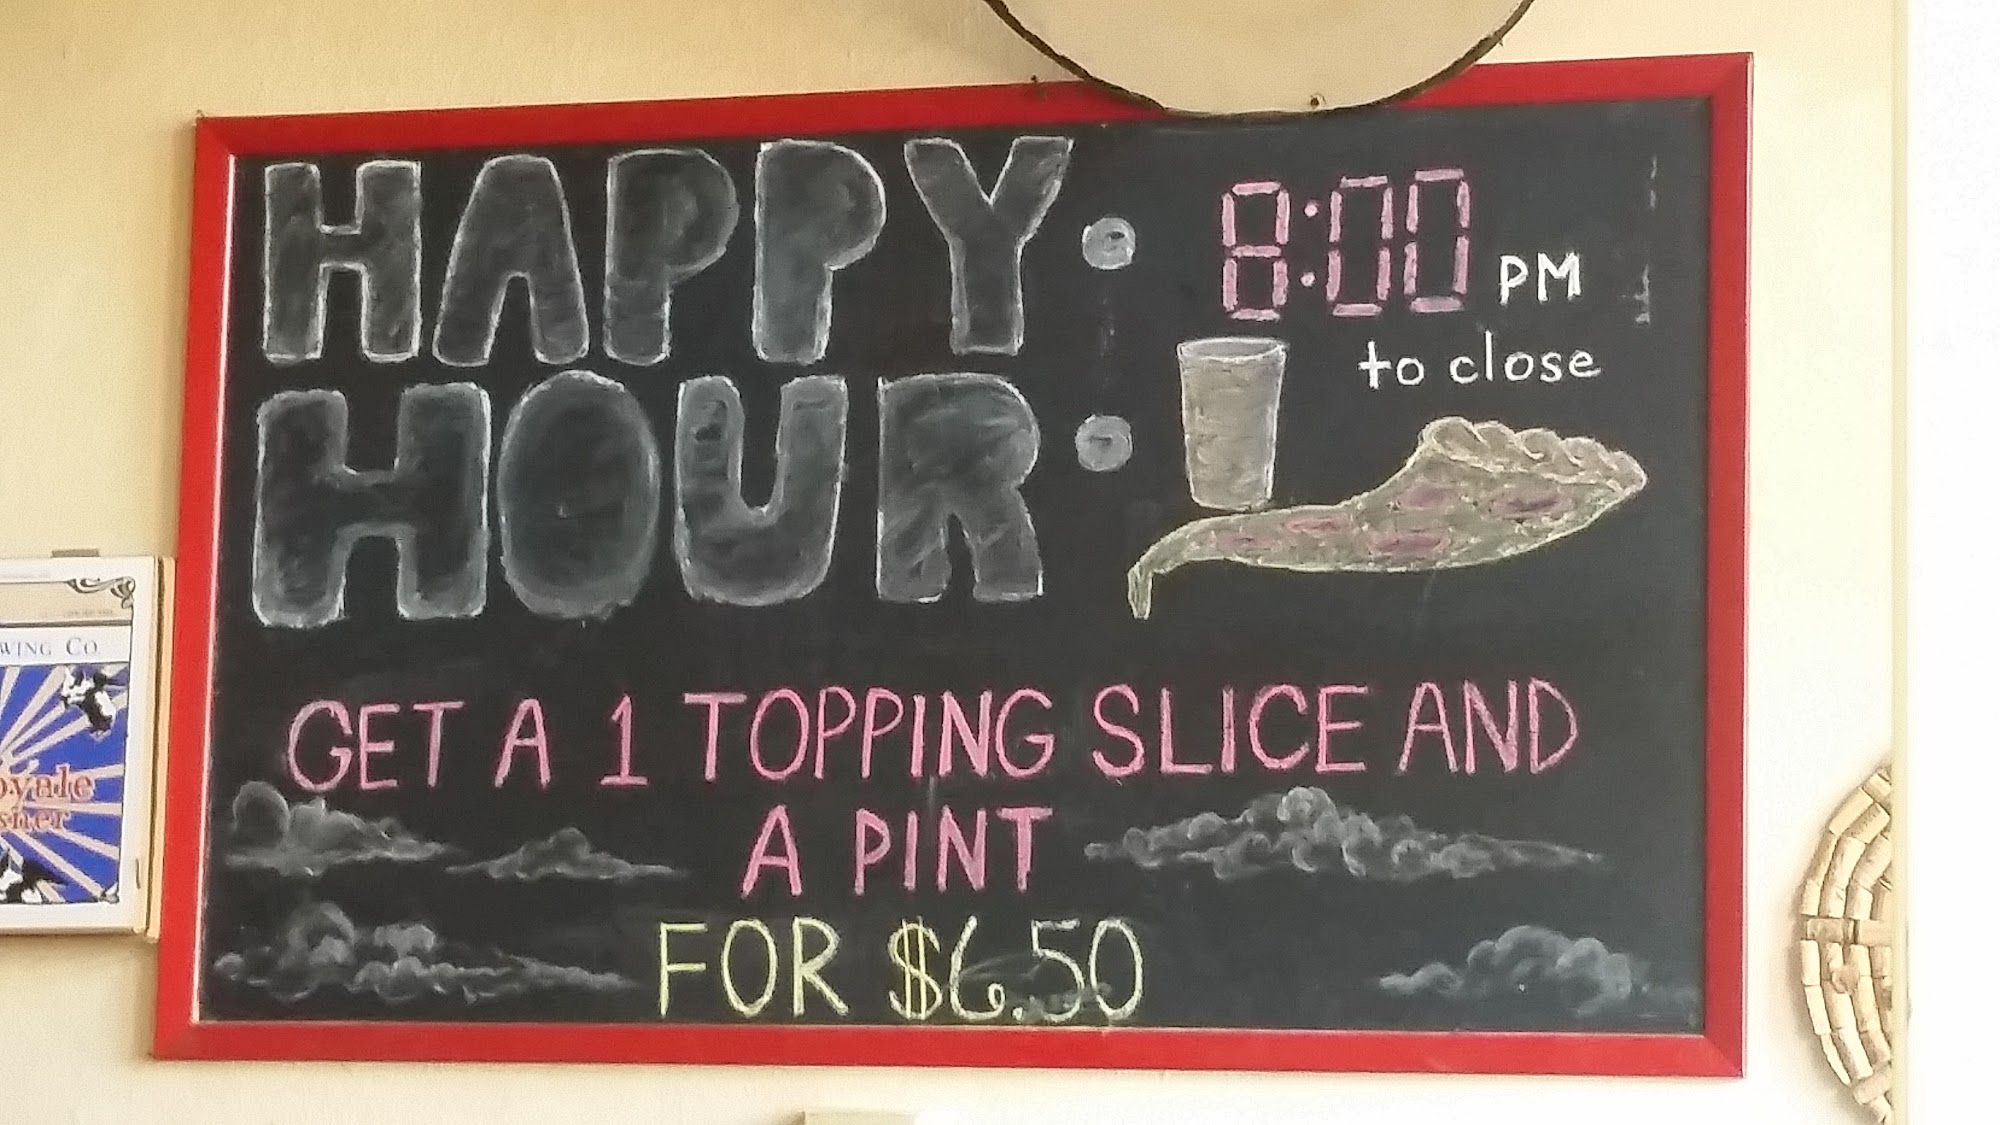 HAPPY
HOUR:
8:00 PM
to close
GET A 1 TOPPING SLICE AND
A PINT
FOR $6.50
WING CO.